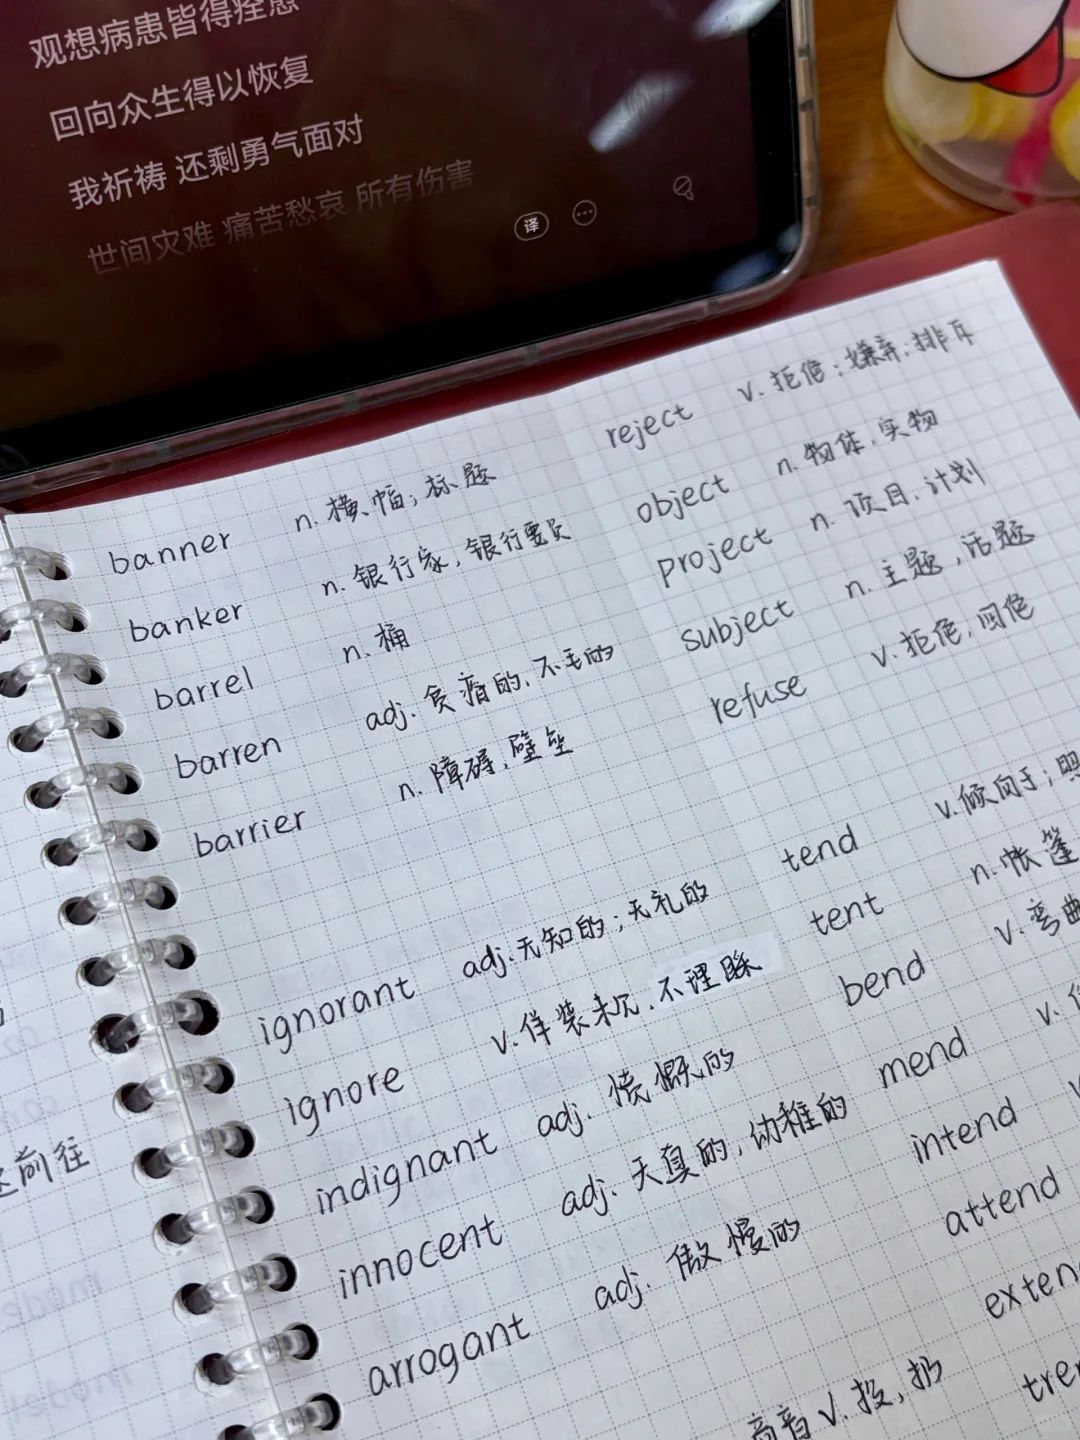 观想病患皆得痊愈
回向众生得以恢复
我祈祷 还剩勇气面对
世间灾难 痛苦愁哀 所有伤害
译
banner n. 横幅；标题
banker n. 银行家，银行要员
barrel n. 桶
barren adj. 贫瘠的，不毛的
barrier n. 障碍，壁垒
ignorant adj. 无知的；无礼的
ignore v. 佯装未见，不理睬
indignant adj. 愤慨的
innocent adj. 天真的，幼稚的
arrogant adj. 傲慢的
高音 v. 投，扔
reject v. 拒绝；嫌弃；排斥
object n. 物体，实物
project n. 项目，计划
subject n. 主题，话题
refuse v. 拒绝，回绝
tend v. 倾向于；照
tent n. 帐篷
bend v. 弯曲
mend v.
intend
attend
exten
tre
前往